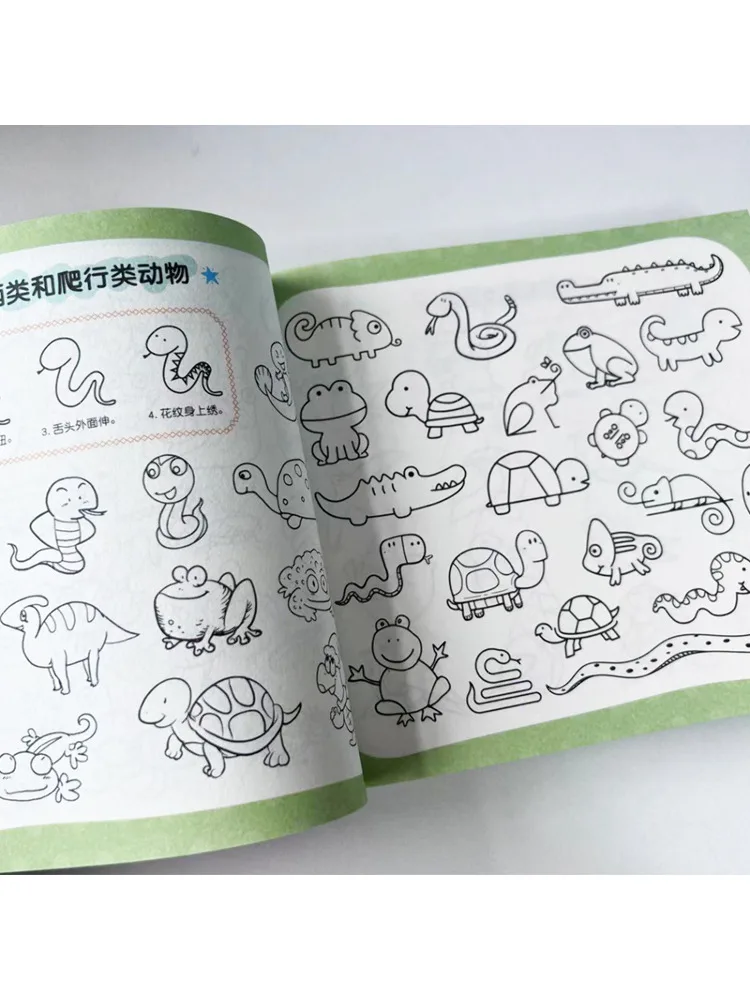 类和爬行类动物
3. 舌头外面伸。
4. 花纹身上绣。